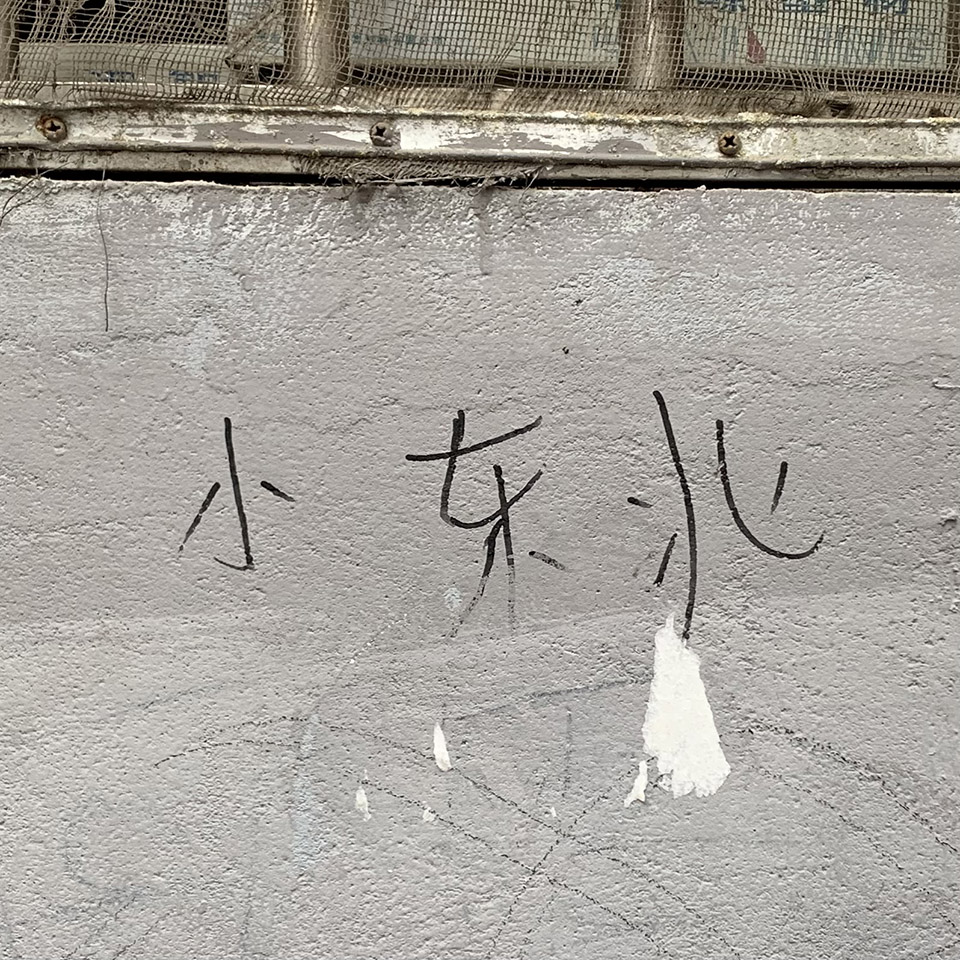 小东北